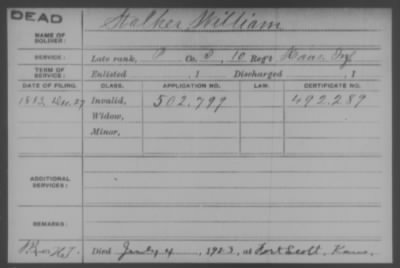 DEAD
Walker William
NAME OF SOLDIER:
SERVICE: Late rank, P Co. D, 10 Reg't Kans. Inf
TERM OF SERVICE: Enlisted , 1 Discharged , 1
DATE OF FILING. CLASS. APPLICATION NO. LAW. CERTIFICATE NO.
1883, Dec. 27 Invalid, 502.799 492.289
Widow,
Minor,
ADDITIONAL SERVICES:
REMARKS:
Died July 4, 1923, at Fort Scott, Kans.